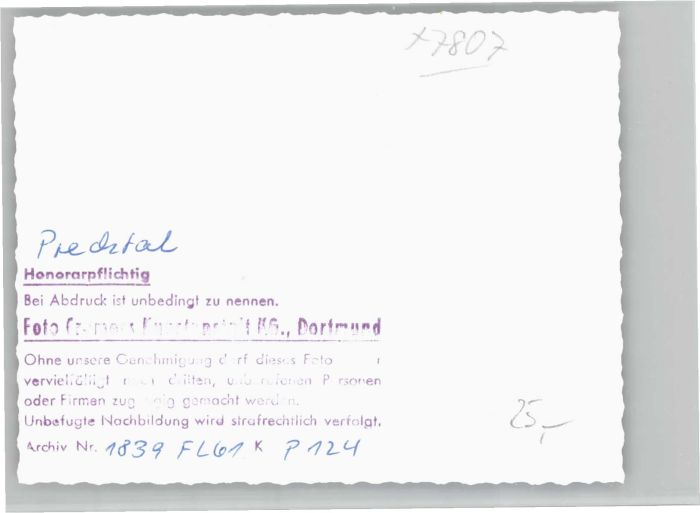 x7807
Honorarpflichtig
Bei Abdruck ist unbedingt zu nennen.
Foto Cramers Kunstanstalt KG., Dortmund
Ohne unsere Genehmigung darf dieses Foto
vervielfältigt noch dritten, unberufenen Personen
oder Firmen zugängig gemacht werden.
Unbefugte Nachbildung wird strafrechtlich verfolgt.
25,-
Archiv Nr. 1839 FL61 K P 124